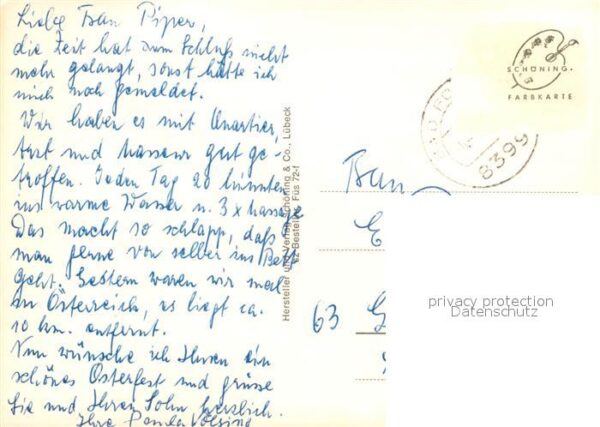 Liebe Frau Piper,
die Zeit hat zum Schluß nicht
mehr gelangt, sonst hätte ich
mich noch gemeldet.
Wir haben es mit Quartier,
Arzt und Masseur gut ge-
troffen. Jeden Tag 20 Minuten
ins warme Wasser u. 3 x Massage
Das macht so schlapp, daß
man gerne von selber ins Bett
geht. Gestern waren wir mal
in Österreich, es liegt ca.
10 km. entfernt.
Nun wünsche ich Ihnen ein
schönes Osterfest und grüsse
Sie und Ihren Sohn herzlich.
Ihre
Hersteller und Verlag Schöning & Co., Lübeck
Bestell Füs 72-f
SCHÖNING-
FARBKARTE
8399
Frau
E
63 G
privacy protection
Datenschutz